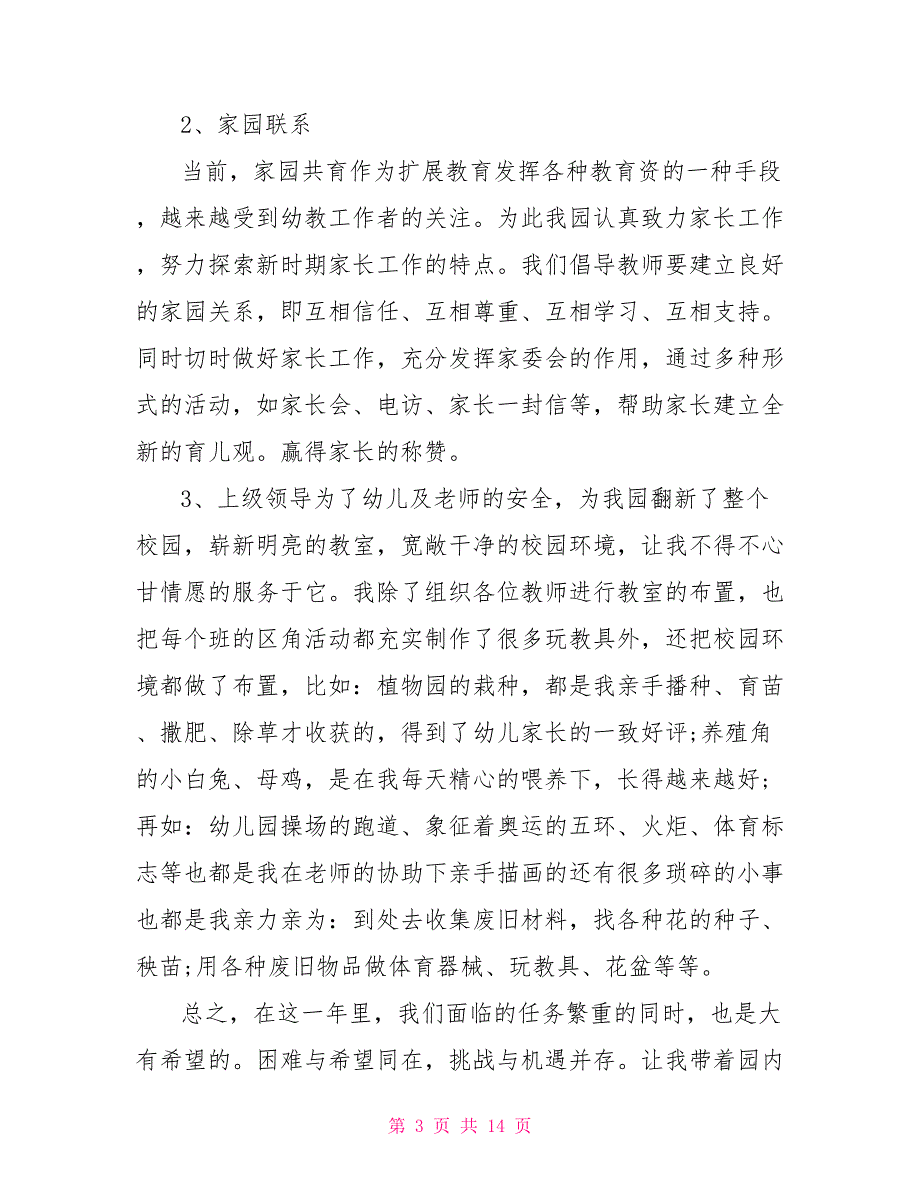 2、家园联系
当前，家园共育作为扩展教育发挥各种教育资的一种手段
，越来越受到幼教工作者的关注。为此我园认真致力家长工作
，努力探索新时期家长工作的特点。我们倡导教师要建立良好
的家园关系，即互相信任、互相尊重、互相学习、互相支持。
同时切时做好家长工作，充分发挥家委会的作用，通过多种形
式的活动，如家长会、电访、家长一封信等，帮助家长建立全
新的育儿观。赢得家长的称赞。
3、上级领导为了幼儿及老师的安全，为我园翻新了整个
校园，崭新明亮的教室，宽敞干净的校园环境，让我不得不心
甘情愿的服务于它。我除了组织各位教师进行教室的布置，也
把每个班的区角活动都充实制作了很多玩教具外，还把校园环
境都做了布置，比如：植物园的栽种，都是我亲手播种、育苗
、撒肥、除草才收获的，得到了幼儿家长的一致好评;养殖角
的小白兔、母鸡，是在我每天精心的喂养下，长得越来越好;
再如：幼儿园操场的跑道、象征着奥运的五环、火炬、体育标
志等也都是我在老师的协助下亲手描画的还有很多琐碎的小事
也都是我亲力亲为：到处去收集废旧材料，找各种花的种子、
秧苗;用各种废旧物品做体育器械、玩教具、花盆等等。
总之，在这一年里，我们面临的任务繁重的同时，也是大
有希望的。困难与希望同在，挑战与机遇并存。让我带着园内
第 3 页 共 14 页